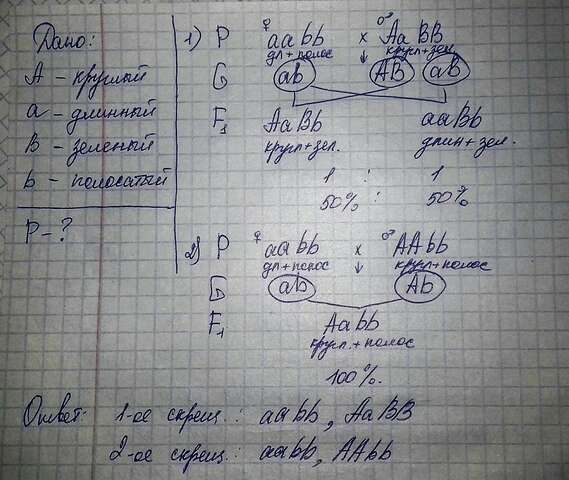 Дано:
A - круглый
a - длинный
B - зеленый
b - полосатый
P - ?
1) P ♀ aabb x ♂ AaBB
дл + полос кругл + зел.
G ab AB aB
F1 AaBb aaBb
кругл + зел. длин + зел.
1 : 1
50% : 50%
2) P ♀ aabb x ♂ AAbb
дл + полос кругл + полос
G ab Ab
F1 Aabb
кругл. + полос
100%.
Ответ: 1-ое скрещ.: aabb, AaBB
2-ое скрещ.: aabb, AAbb